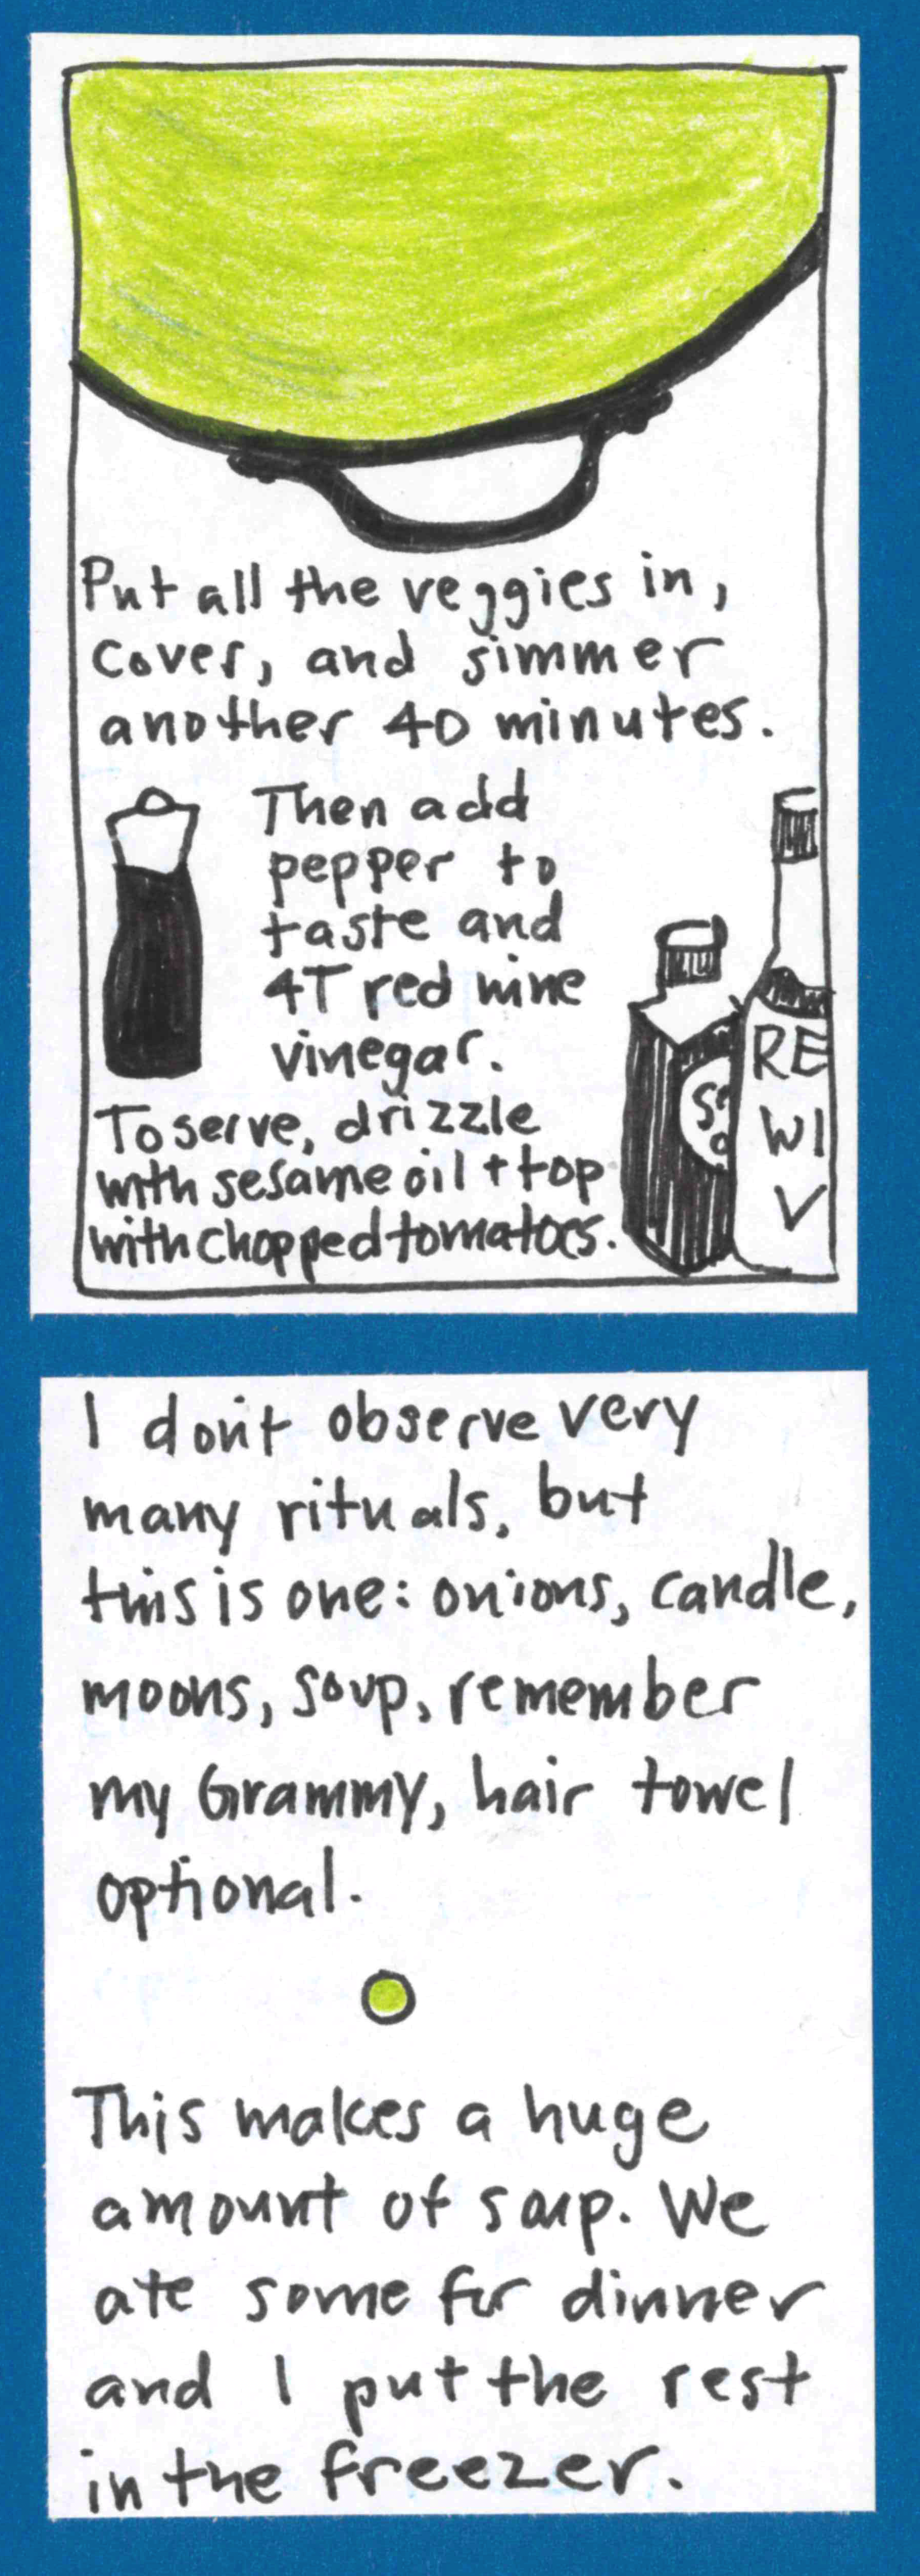 Put all the veggies in,
cover, and simmer
another 40 minutes.
Then add
pepper to
taste and
4T red wine
vinegar.
To serve, drizzle
with sesame oil + top
with chopped tomatoes.
RE
WI
V
I don't observe very
many rituals, but
this is one: onions, candle,
moons, soup, remember
my Grammy, hair towel
optional.
This makes a huge
amount of soup. We
ate some for dinner
and I put the rest
in the freezer.